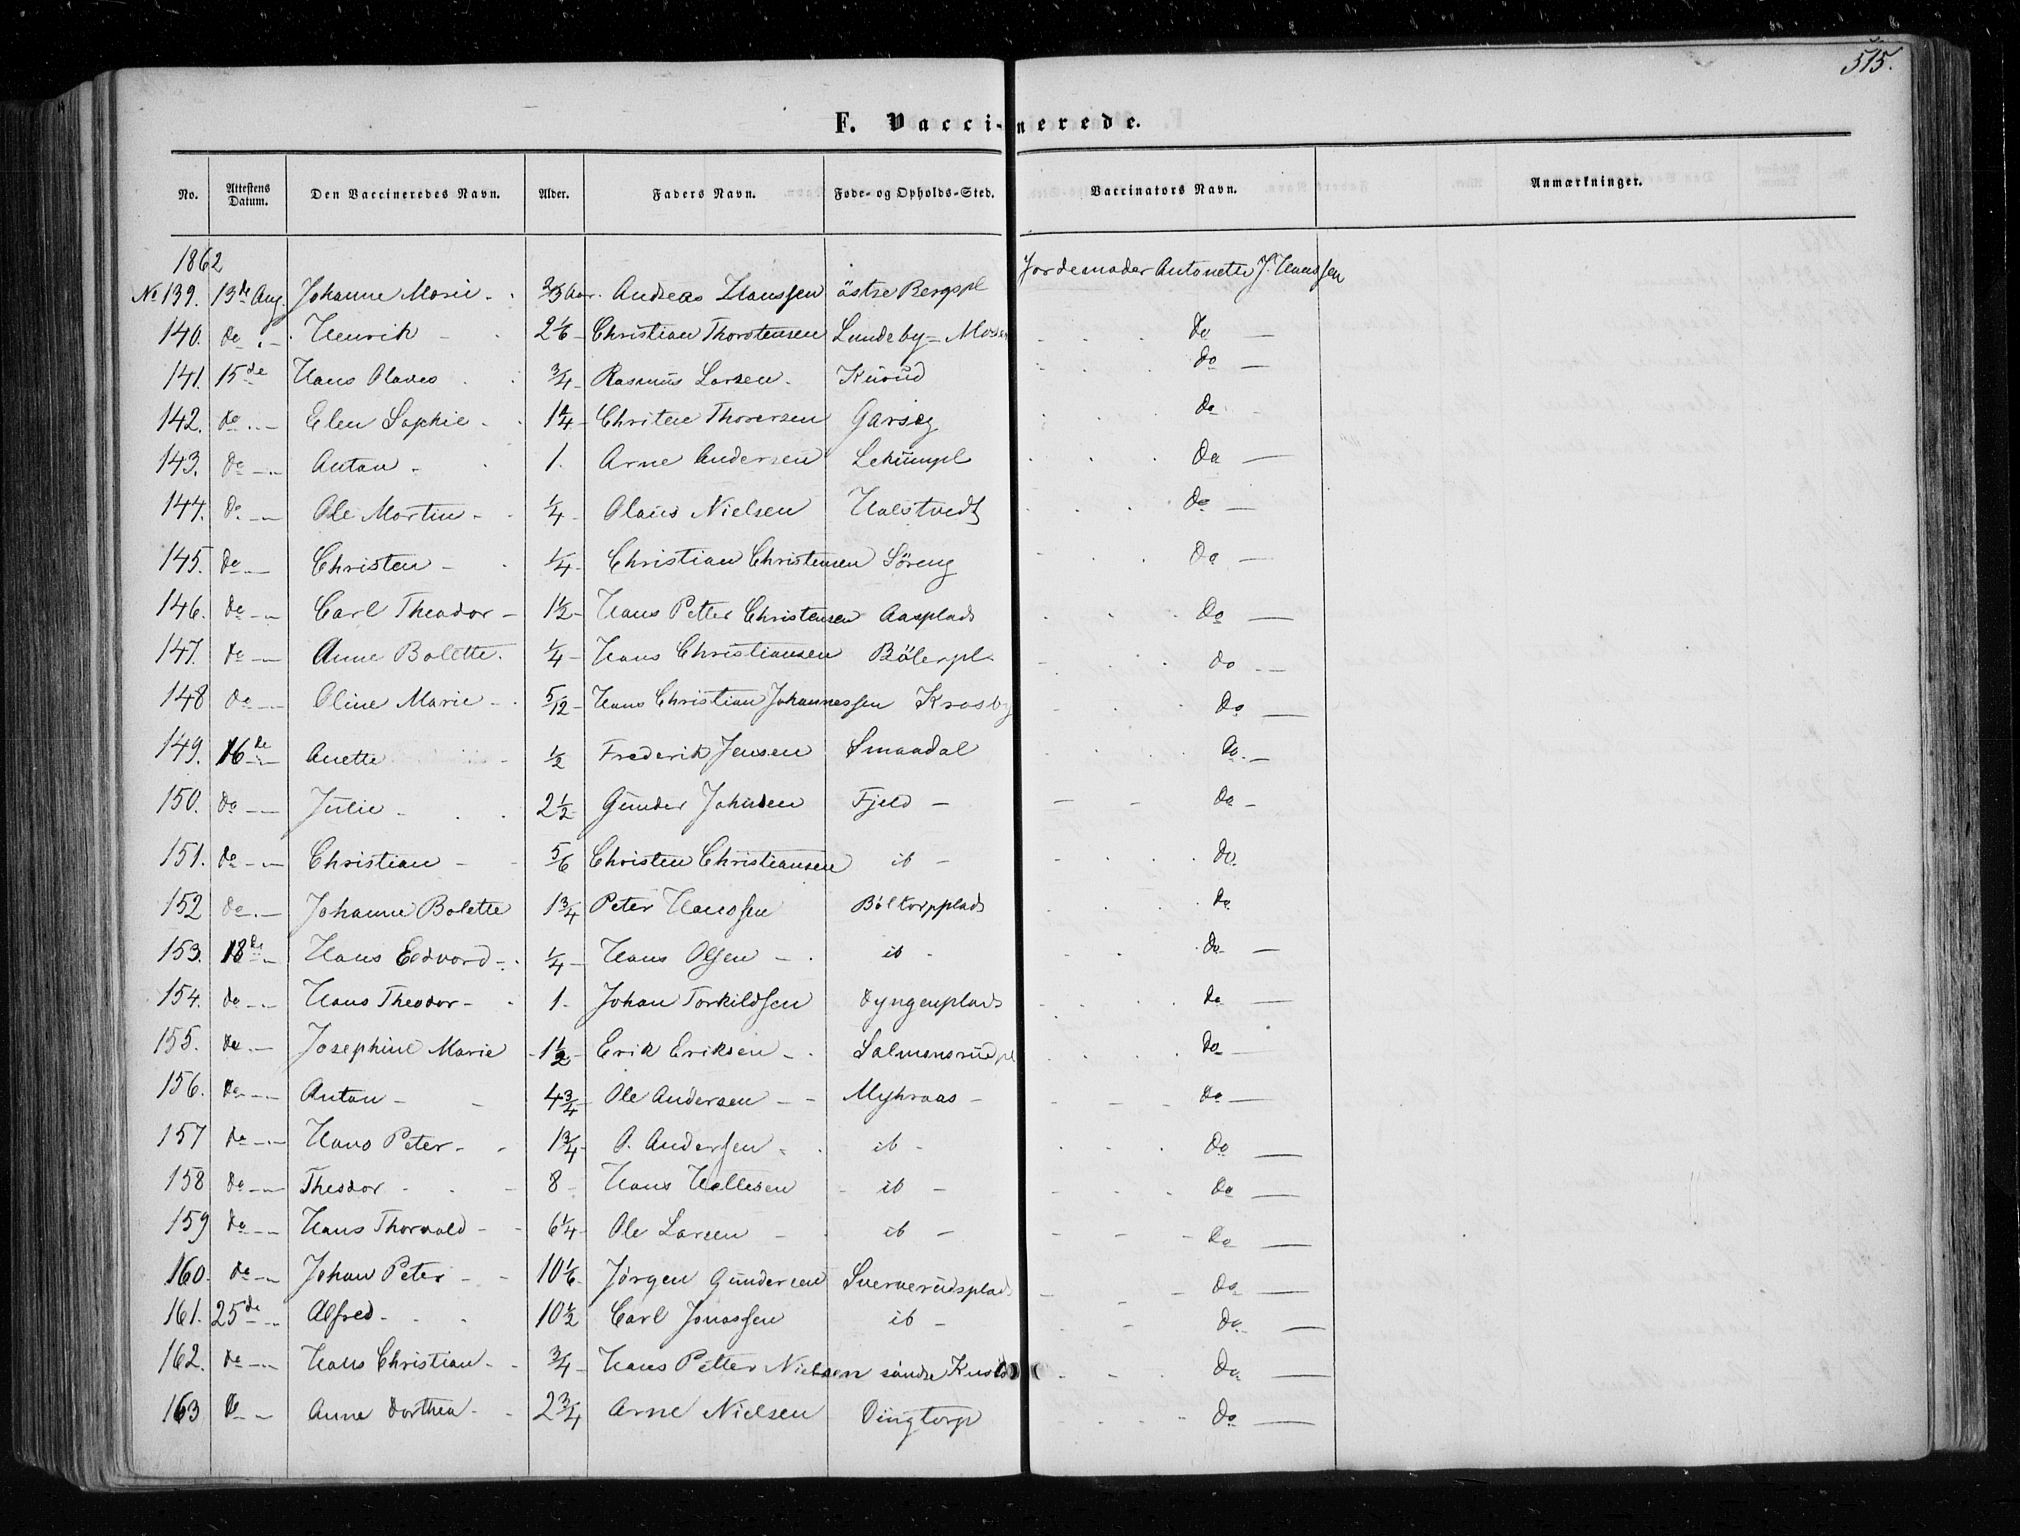 515.
F. Vaccinerede.
No. Attestens Datum. Den Vaccineredes Navn. Alder. Faders Navn. Føde- og Opholds-Sted. Vaccinators Navn. Anmærkninger.
1862
No 139. 13de Aug. Johanne Marie - 2/3 Aar. Andreas Hanssen östre Bergspl Jordemoder Antonette J. Hanssen
140. do Henrik - 2 1/6 - Christian Thorstensen Lundeby = Mosen do -
141. 15de Hans Olaves 3/4 - Rasmus Larsen. Knuud do -
142. do Elen Sophie - 1 1/4 - Christen Thorersen Garseg do
143. do Anton - 1. Arne Andersen Lekumpl do -
144. do Ole Martin - 1/4 - Olaus Nielsen Halstvedt do -
145. do Christen - 1/4 - Christian Christensen Söreng do -
146. do Carl Theodor - 1 1/2 - Hans Petter Christensen Aasplads do -
147. do Anne Bolette. 1/4 - Hans Christiansen Bölerpl. do -
148 do Oline Marie - 5/12 - Hans Christian Johannessen Krosby do -
149. 16de Anette - 1/2 Frederik Jensen Smaadal do. -
150. do Julie - 2 1/2 Gunder Johnsen Fjeld - do -
151. do Christian - 5/6 Christen Christiansen ib - do.
152 do Johanne Bolette 1 3/4 Peter Hanssen Bölkorpplads do
153. 18de Hans Edvard - 1/4 - Hans Olsen - ib - do -
154. do Hans Theodor - 1 - Johan Torkildsen Dyngenplads do -
155. do Josephine Marie - 1 1/2 - Erik Eriksen - Salmonsrudpl do -
156. do Anton - 4 3/4 - Ole Andersen - - Myhraas - do -
157 do Hans Peter - 1 3/4 - O. Andersen - ib - do -
158 do Theodor - 8 - Hans Hallesen - ib - do -
159 do Hans Thorvald - 6 1/4 - Ole Larsen - ib - do -
160. do Johan Peter - 10 1/6 - Jørgen Gundersen Sververudsplads do -
161. 25de Alfred - 10 1/2 Carl Jonassen ib - do. -
162. do Hans Christian - 3/4 - Hans Petter Nielsen söndre Knuud do -
163 do Anne Dorthea - 2 3/4 - Arne Nielsen Dingtorp do -